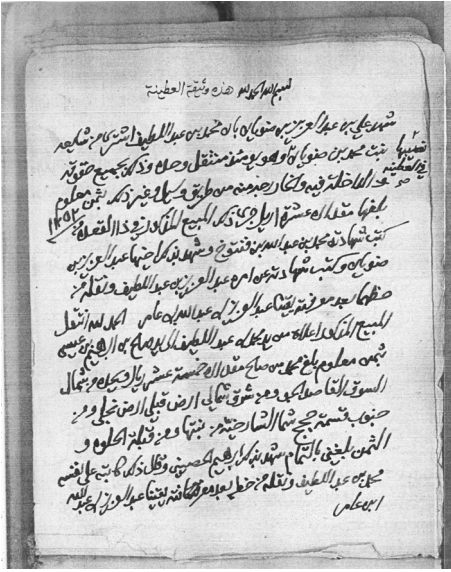 بسم الله الحمد لله هذه وثيقة العطينة
شهد علي بن عبد العزيز بن ضويان بان محمد بن عبد اللطيف اشترى من شايعه
بنت محمد بن ضويان وهو يومئذ منتقل وحده وذلك بجميع حقوقه
نصيبها في العطينة
الداخلة فيه والخارجة منه من طريق وسيل وغير ذلك بثمن معلوم
بلغها مقداره عشرة اريل جرى ذلك المبيع المذكور في ذا القعدة ١٢٥٢
كتب شهادته محمد بن عبد الله بن فنتوخ وشهد بذلك اخيها عبد العزيز بن
ضويان وكتب شهادته عن امره عبد العزيز بن عبد اللطيف ونقله من
خطهما بعد معرفته يقينا عبد العزيز بن عبد الله بن عامر الحمد لله انتقل
المبيع المذكور اعلاه من يد محمد بن عبد اللطيف الى يد صالح بن ابراهيم بن عيسى
بثمن معلوم بلغ محمد من صالح مقداره خمسة عشر ريال ويحده من شمال
السوق الفاصل ومن شرق شمالي ارض قبلي ارض نخلي ومن
جنوب قسمة ومن قبلة الحلوه و
الثمن بلغني بالتمام شهد بذلك ابراهيم الحصيني وقال ذلك كاتبه على نفسه
محمد بن عبد اللطيف ونقله من خطه بعد معرفته يقينا عبد العزيز بن عبد الله
ابن عامر